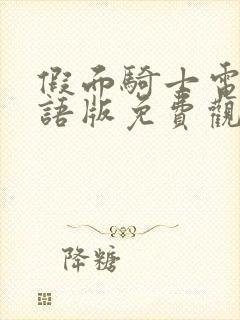 假面騎士電
語版免費觀
降糖